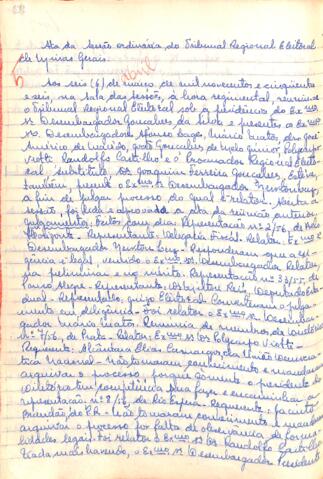 Ata da sessão ordinária do Tribunal Regional Eleitoral
de Minas Gerais.
abril
Aos seis (6) de março de mil novecentos e cinquenta
e seis, na sala das sessões, à hora regimental, reuniu-se
o Tribunal Regional Eleitoral sob a presidência do Exmo
Sr. Desembargador Gonçalves da Silva e presentes os Exmos
Srs. Desembargadores Afonso Lages, Mário Matos, drs. José
Américo de Macedo, Gonçalves de Melo Júnior, Policarpo
Viotti, Randolfo Castilho e o Procurador Regional Eleito-
ral, substituto, Dr. Joaquim Ferreira Gonçalves. Esteve
também presente o Exmo Sr. Desembargador Newton Luz,
a fim de julgar processo do qual é relator. Aberta a
sessão, foi lida e aprovada a ata da reunião anterior.
Julgamentos feitos com dia: Representação nº 2/56, de Belo
Horizonte. Representante: Delegacia Fiscal. Relator: Exmo Sr.
Desembargador Newton Luz. Responderam que a exi-
gência é legal, vencido o Exmo Sr. Desembargador Relator,
na preliminar e no mérito. Representação nº 32/55, de
Deputado Esta-
dual. Representado: Juiz Eleitoral. Converteram o julga-
mento em diligência. Foi relator o Exmo Sr. Desembar-
gador Mário Matos. Renúncia de membros de diretório
nº 7/56, de Prata. Relator: Exmo Sr. Dr. Policarpo Viotti.
Requerente: da União Democrá-
tica Nacional. Não tomaram conhecimento e mandaram
arquivar o processo, porque sòmente o presidente do
Diretório tem competência para fazer e encaminhar a
representação. nº 8/56, de Rio Espera. Requerente: Jacinto
Brandão, do P.R. Não tomaram conhecimento e mandaram
arquivar o processo por falta de observância de forma-
lidades legais. Foi relator o Exmo Sr. Dr. Randolfo Castilho.
Nada mais havendo, o Exmo Sr. Desembargador Presidente